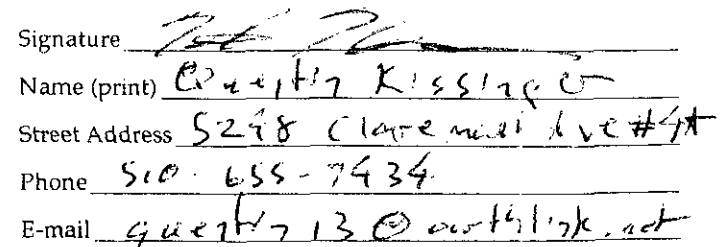 Signature
Name (print) Quentin Kissinger
Street Address 5298 Claremont Ave #4A
Phone 510-655-7434
E-mail quentin13@earthlink.net